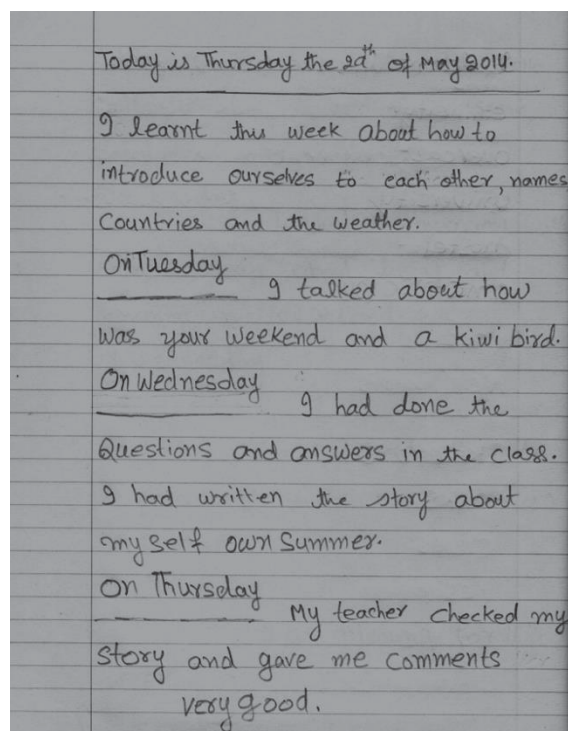 Today is Thursday the 29th of May 2014.
I learnt this week about how to
introduce ourselves to each other, names
Countries and the weather.
On Tuesday
I talked about how
was your weekend and a kiwi bird.
On Wednesday
I had done the
Questions and answers in the class.
I had written the story about
my self own Summer.
On Thursday
My teacher checked my
story and gave me comments
very good.